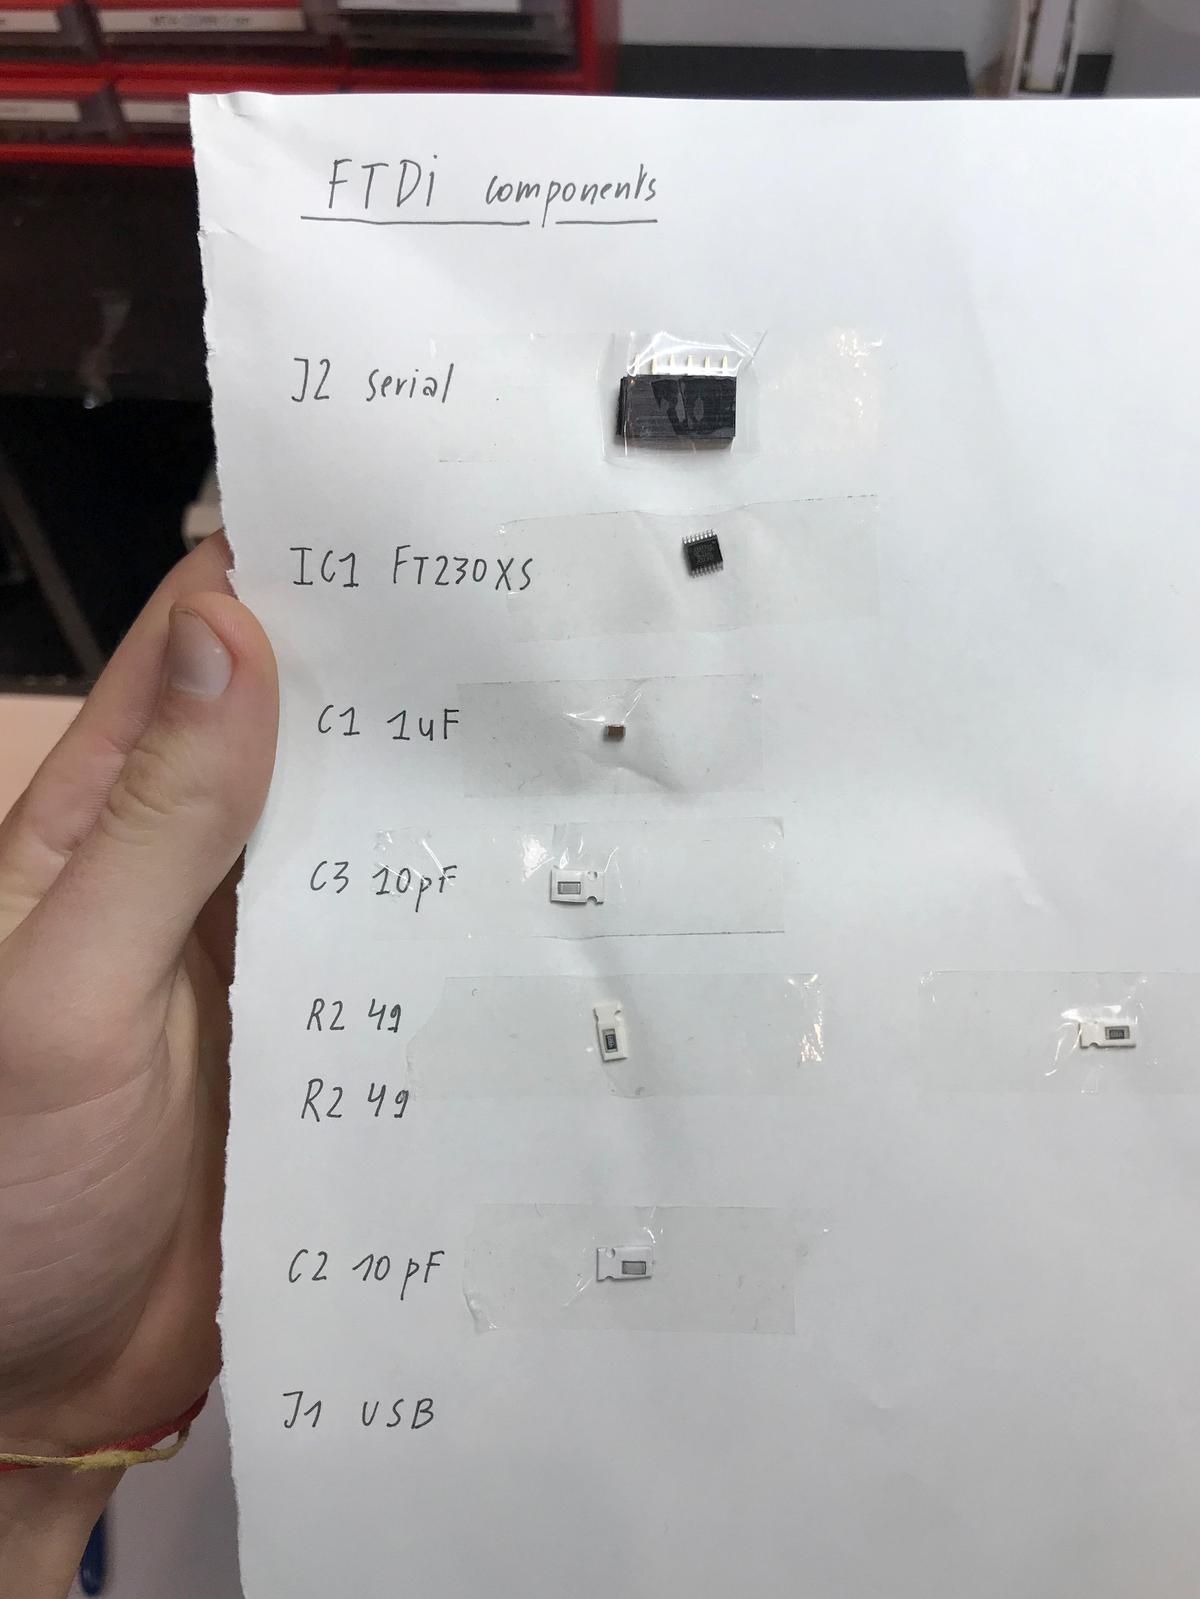 FTDi components
J2 serial
IC1 FT230XS
C1 1uF
C3 10pF
R2 49
R2 49
C2 10pF
J1 USB